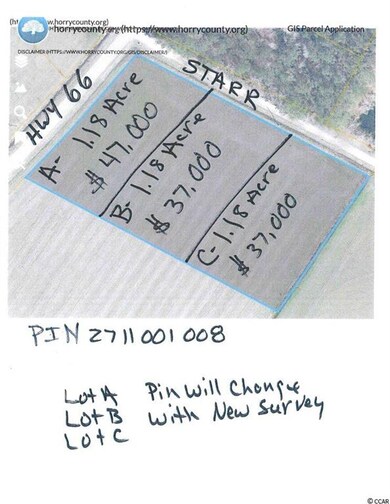 horrycounty.org (https://www.horrycounty.org)
GIS Parcel Application
DISCLAIMER (HTTPS://WWW.HORRYCOUNTY.ORG/GIS/DISCLAIMER)
HWY 66
STARR
A- 1.18 Acre
$ 47,000
B- 1.18 Acre
$ 37,000
C- 1.18 Acre
$ 37,000
PIN 2711001008
Lot A Pin Will Change
Lot B With New Survey
Lot C
© CCAR